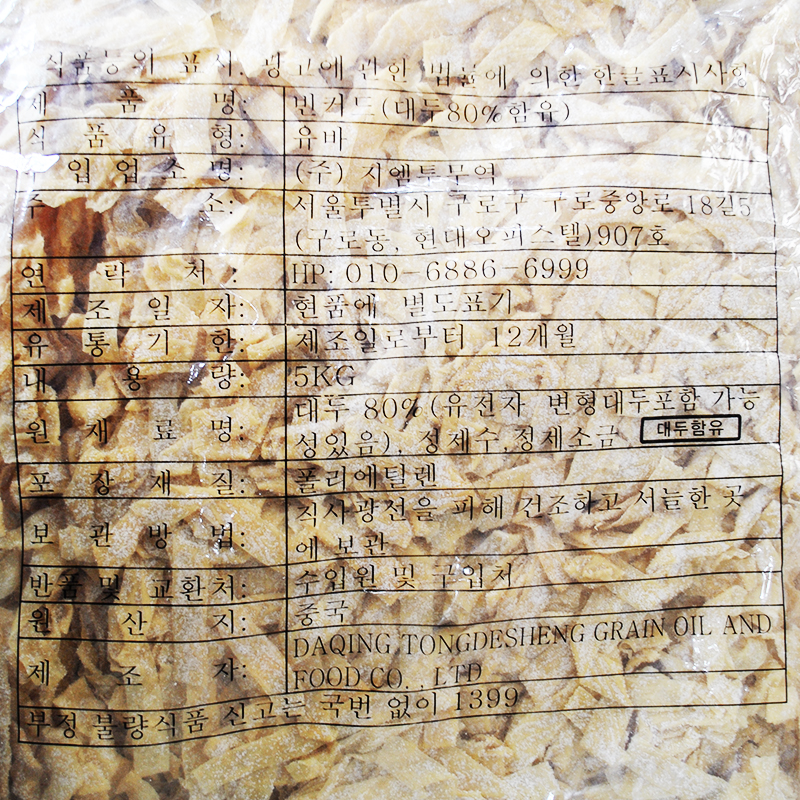 식품등의 표시.광고에 관한 법률에 의한 한글표시사항
제 품 명: 빈커드(대두80%함유)
식 품 유 형: 유바
수 입 업 소 명: (주) 지엠투무역
주 소: 서울특별시 구로구 구로중앙로 18길5
(구로동, 현대오피스텔)907호
연 락 처 : HP: 010-6886-6999
제 조 일 자: 현품에 별도표기
유 통 기 한: 제조일로부터 12개월
내 용 량: 5KG
원 재 료 명: 대두 80%(유전자 변형대두포함 가능
성있음), 정제수,정제소금 대두함유
포 장 재 질: 폴리에틸렌
보 관 방 법: 직사광전을 피해 건조하고 서늘한 곳
에 보관
반품 및 교환처: 수입원 및 구입처
원 산 지: 중국
제 조 자: DAQING TONGDESHENG GRAIN OIL AND
FOOD CO., LTD
부정 불량식품 신고는 국번 없이 1399